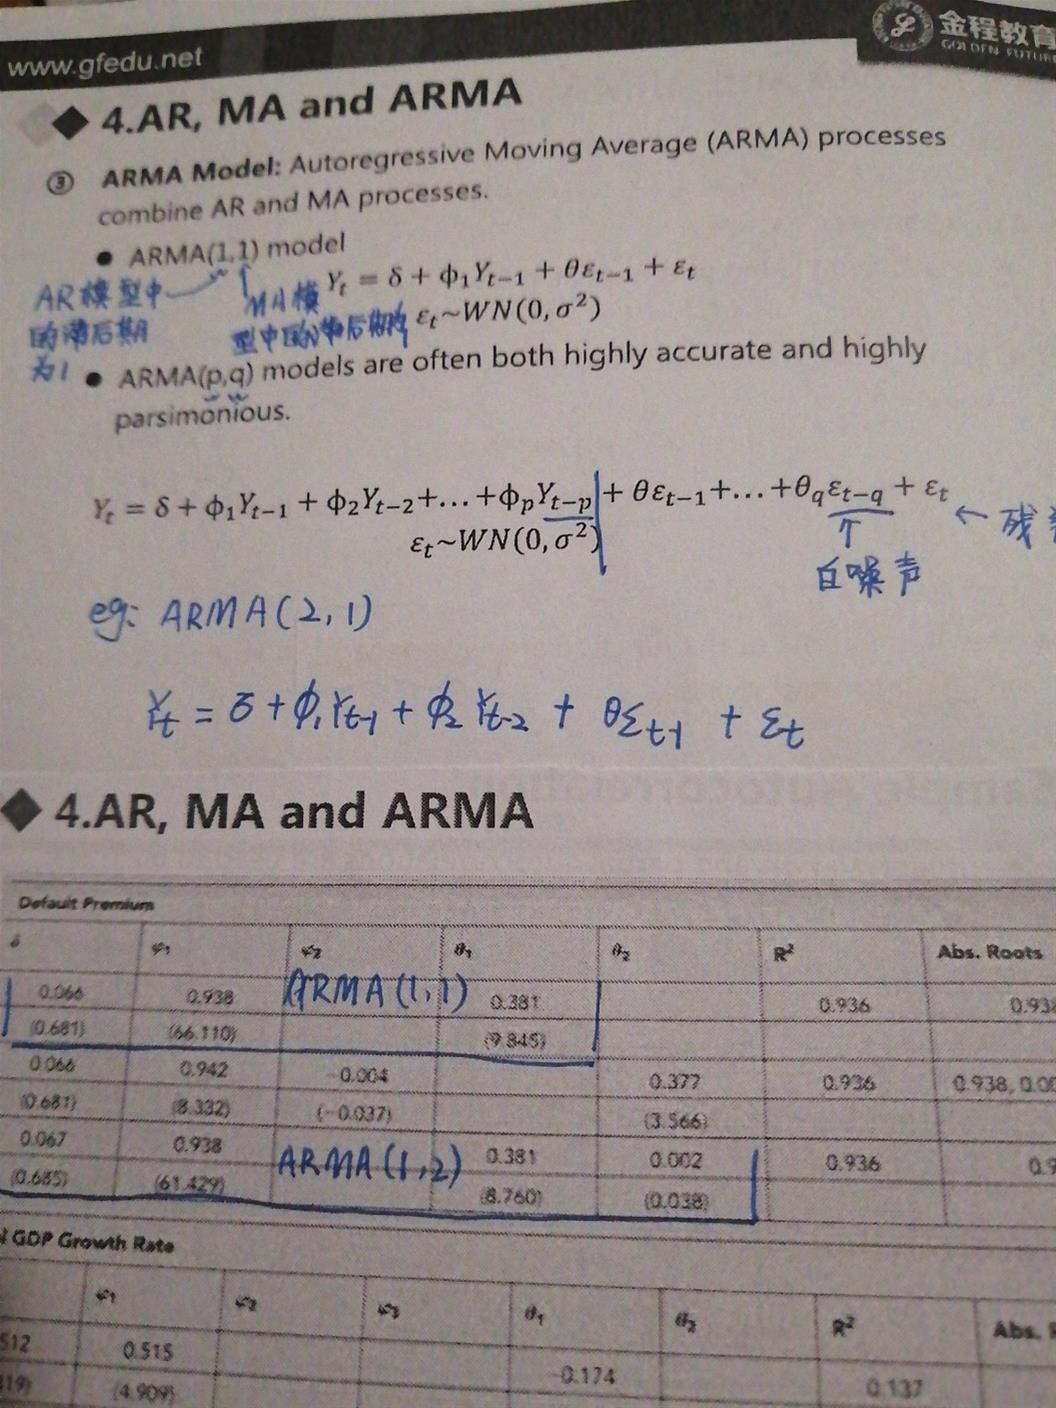 www.gfedu.net
金程教育
GOLDEN FUTURE
4.AR, MA and ARMA
③ ARMA Model: Autoregressive Moving Average (ARMA) processes
combine AR and MA processes.
● ARMA(1,1) model
Yₜ = δ + ϕ₁Yₜ₋₁ + θεₜ₋₁ + εₜ
AR模型中
的滞后期
为1
MA模
型中的滞后期为
εₜ~WN(0, σ²)
● ARMA(p,q) models are often both highly accurate and highly
parsimonious.
Yₜ = δ + ϕ₁Yₜ₋₁ + ϕ₂Yₜ₋₂+…+ϕₚYₜ₋ₚ + θεₜ₋₁+…+θ_qεₜ₋q + εₜ
εₜ~WN(0, σ²)
← 残
白噪声
eg: ARMA(2,1)
Yₜ = δ + ϕ₁Yₜ₋₁ + ϕ₂Yₜ₋₂ + θεₜ₋₁ + εₜ
4.AR, MA and ARMA
Default Premium
δ φ₁ φ₂ θ₁ θ₂ R² Abs. Roots
0.066 0.938 ARMA(1,1) 0.381 0.936 0.938
(0.681) (66.110) (9.845)
0.066 0.942 -0.004 0.377 0.936 0.938, 0.00
(0.681) (8.332) (-0.037) (3.566)
0.067 0.938 ARMA(1,2) 0.381 0.002 0.936 0.9
(0.685) (61.429) (8.760) (0.038)
GDP Growth Rate
φ₁ φ₂ φ₃ θ₁ θ₂ R² Abs.
512 0.515 -0.174 0.137
(4.909)